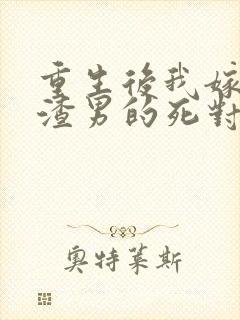 重生後我嫁
渣男的死對
奧特萊斯